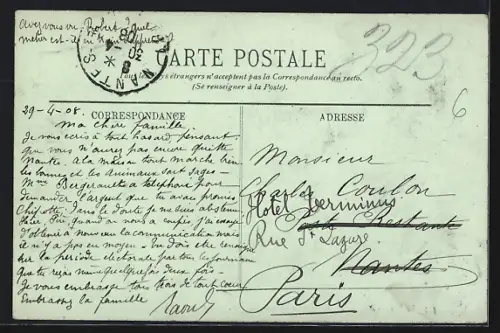 Avez vous vu Robert ? quel
métier est-
NANTES
30
4
08
CARTE POSTALE
étrangers n'acceptent pas la Correspondance au recto.
(Se renseigner à la Poste).
323
6
CORRESPONDANCE
ADRESSE
29-4-08.
Ma chère famille
Je vous écris à tout hasard, pensant
que vous n'aurez pas encore quitté
Nantes. A la maison tout marche bien
les bonnes et les animaux sont sages -
Mme a téléphoné pour
demander l'argent que tu avais promis
Dans le doute je me suis abstenu
J'ai essayé
d'obtenir à nouveau la communication mais
il n'y a pas eu moyen.
sur la période électorale par les journaux
que tu reçois même quelquefois deux fois.
Je vous embrasse tous de tout coeur
Embrassez la famille
Raoul
Monsieur
Charles Coulon
Hôtel Terminus
Poste Restante
Rue St Lazare
Nantes
Paris